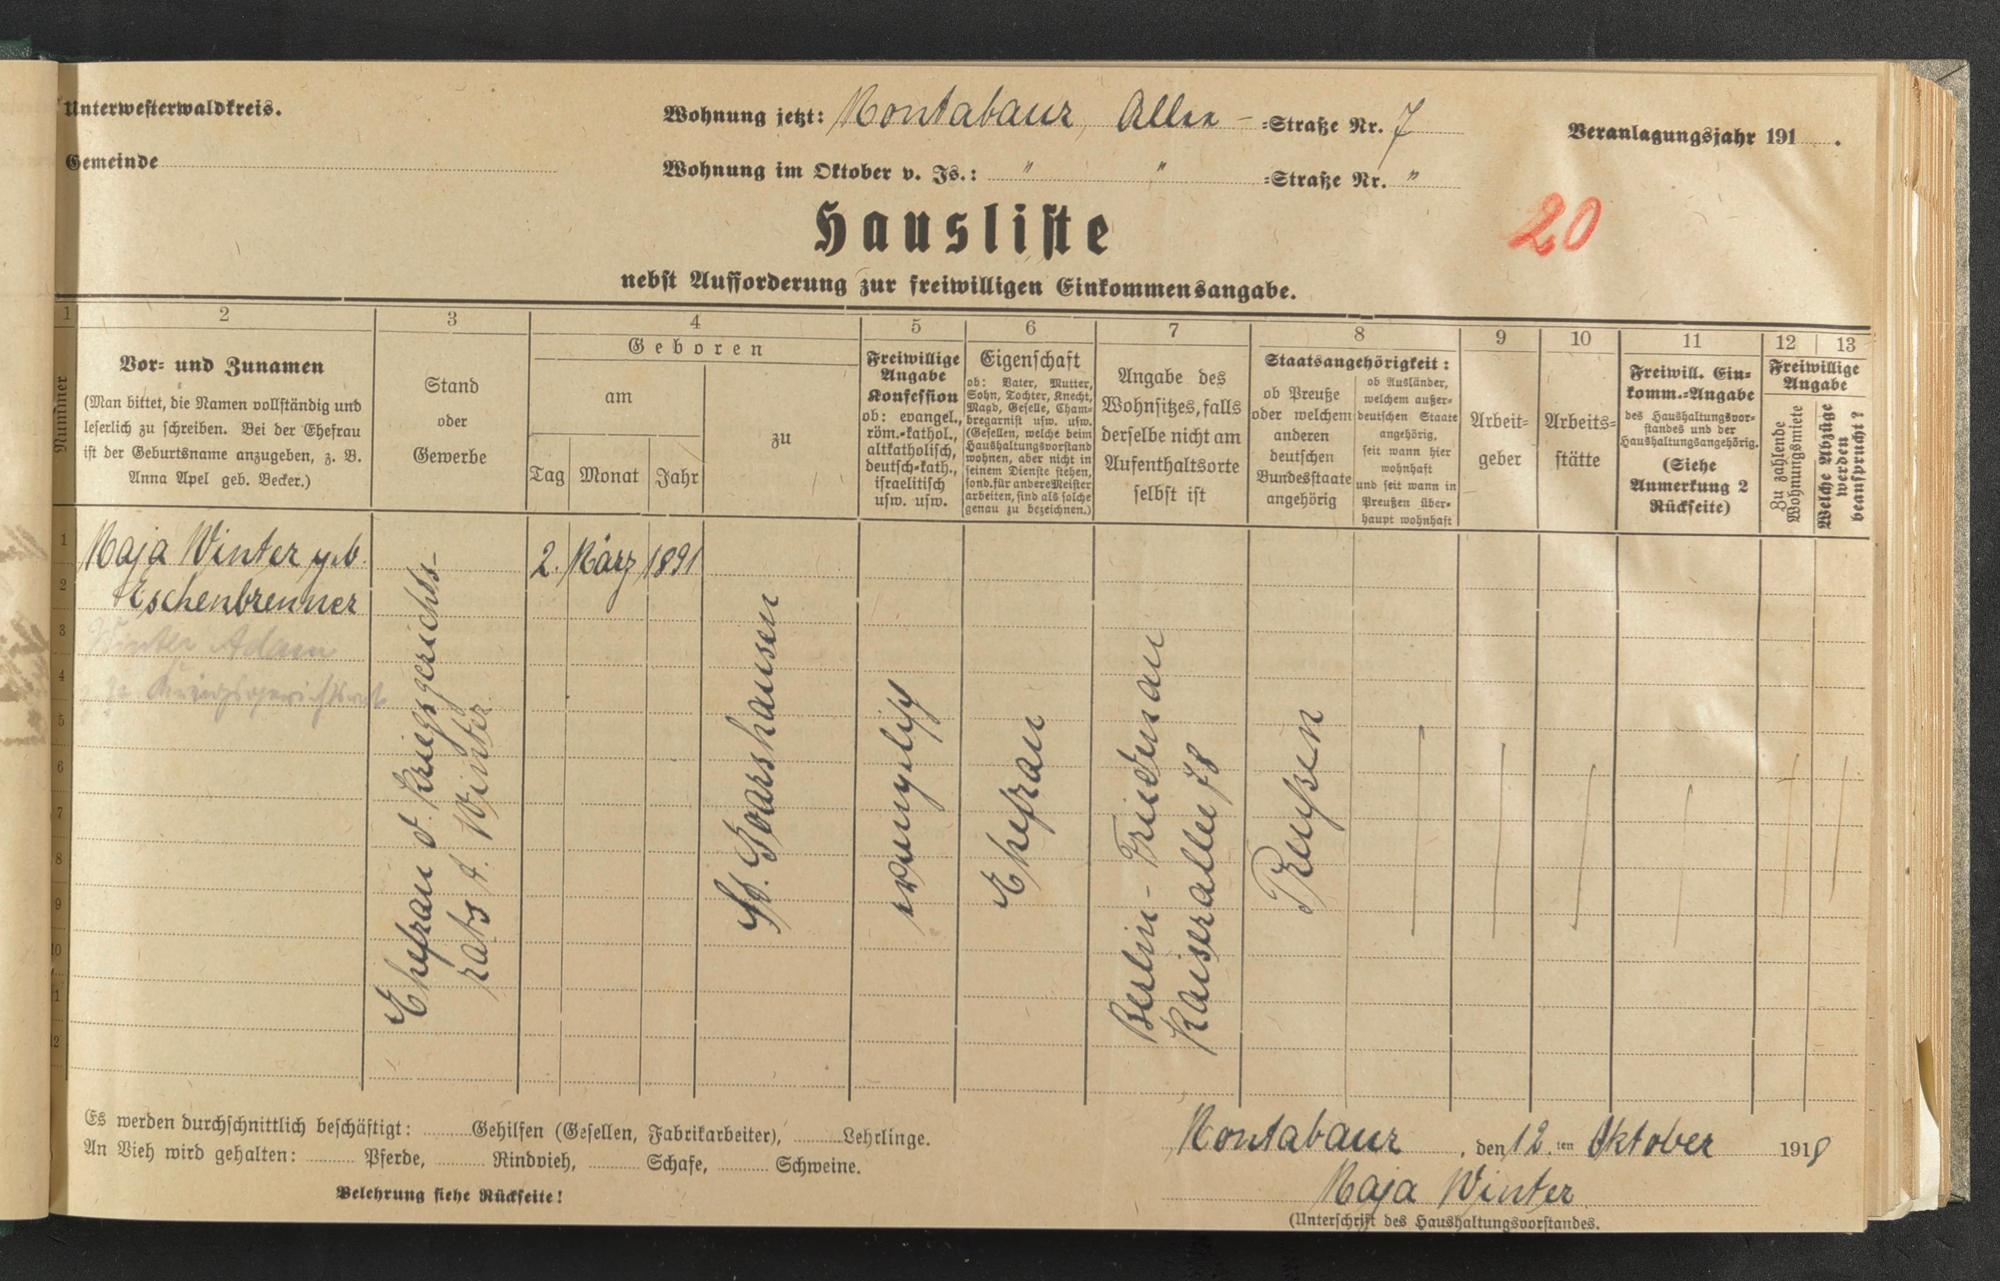 Unterwesterwaldkreis.
Wohnung jetzt: Montabaur, Allee- =Straße Nr. 7
Veranlagungsjahr 191 .
Gemeinde
Wohnung im Oktober v. Js.: " " =Straße Nr. "
20
Hausliste
nebst Aufforderung zur freiwilligen Einkommensangabe.
1 2 3 4 5 6 7 8 9 10 11 12 13
Nummer
Vor- und Zunamen
(Man bittet, die Namen vollständig und
leserlich zu schreiben. Bei der Ehefrau
ist der Geburtsname anzugeben, z. B.
Anna Apel geb. Becker.)
Stand
oder
Gewerbe
Geboren
am
Tag Monat Jahr
zu
Freiwillige
Angabe
Konfession
ob: evangel.,
röm.-kathol.,
altkatholisch,
deutsch-kath.,
israelitisch
usw. usw.
Eigenschaft
ob: Vater, Mutter,
Sohn, Tochter, Knecht,
Magd, Geselle, Cham-
bregarnist usw. usw.
(Gesellen, welche beim
Haushaltungsvorstand
wohnen, aber nicht in
seinem Dienste stehen,
sond. für andere Meister
arbeiten, sind als solche
genau zu bezeichnen.)
Angabe des
Wohnsitzes, falls
derselbe nicht am
Aufenthaltsorte
selbst ist
Staatsangehörigkeit:
ob Preuße
oder welchem
anderen
deutschen
Bundesstaate
angehörig
ob Ausländer,
welchem außer-
deutschen Staate
angehörig,
seit wann hier
wohnhaft
und seit wann in
Preußen über-
haupt wohnhaft
Arbeit-
geber
Arbeits-
stätte
Freiwill. Ein-
komm.-Angabe
des Haushaltungsvor-
standes und der
Haushaltungsangehörig.
(Siehe
Anmerkung 2
Rückseite)
Freiwillige
Angabe
Zu zahlende
Wohnungsmiete
Welche Abzüge
werden
beansprucht?
1 Maja Winter geb. 2. März 1891
2 Eschenbrenner
3 Winter Adam
4 Kriegsgerichtsrat
5
6
7
8
9
10
11
12
Ehefrau d. Kriegsgerichts-
rats A. Winter
St. Goarshausen
evangelisch
Ehefrau
Berlin-Friedenau
Kaiserallee 78
Preußen
Es werden durchschnittlich beschäftigt: Gehilfen (Gesellen, Fabrikarbeiter), Lehrlinge.
An Vieh wird gehalten: Pferde, Rindvieh, Schafe, Schweine.
Belehrung siehe Rückseite!
Montabaur, den 12.ten Oktober 1918
Maja Winter
(Unterschrift des Haushaltungsvorstandes.